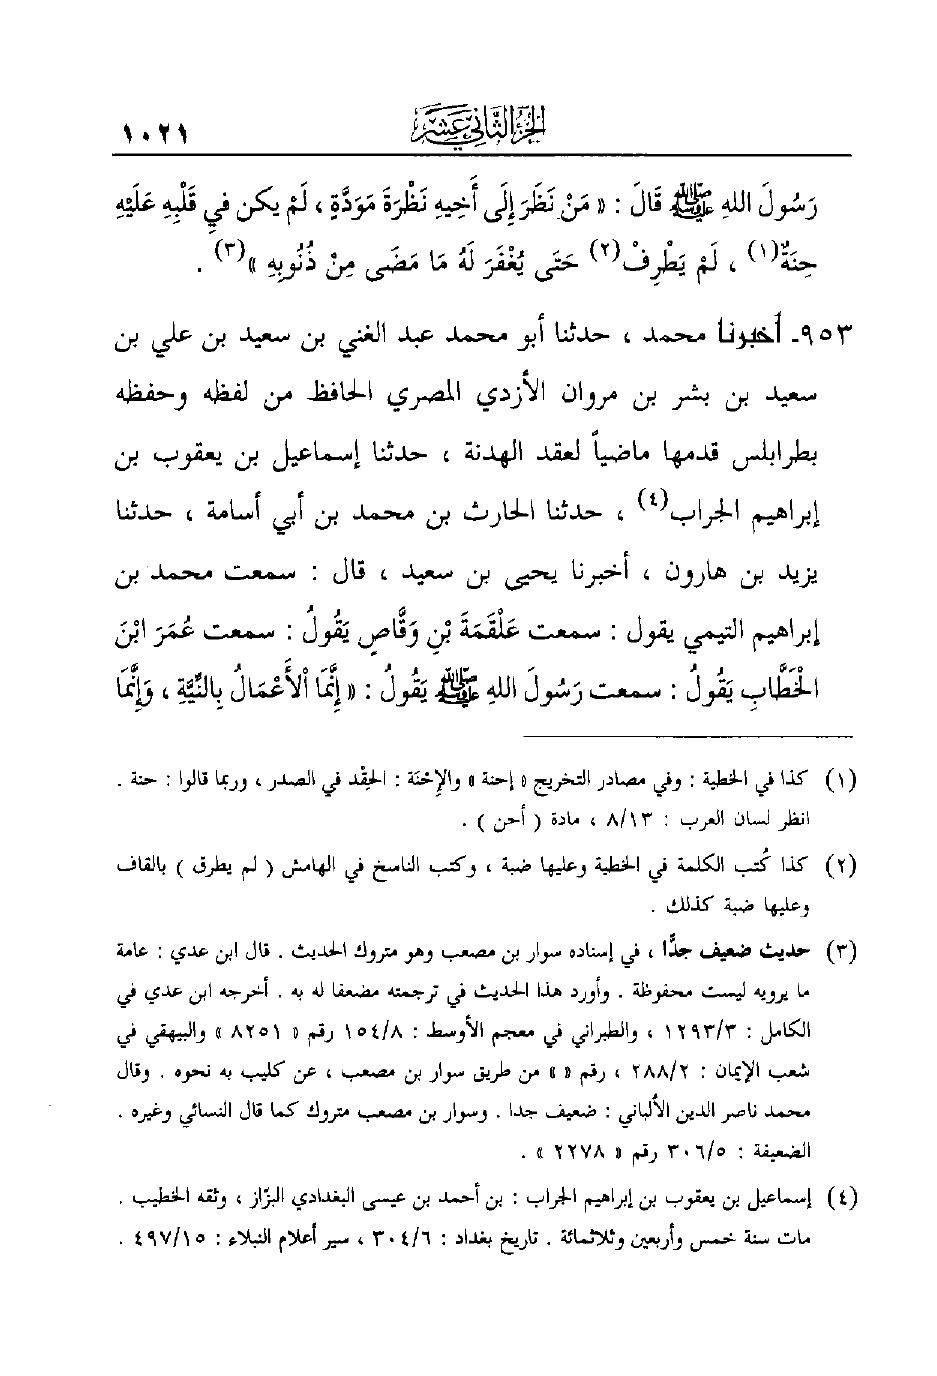 الجزء الثاني عشر ١٠٢١
رَسُولَ اللهِ ﷺ قَالَ : « مَنْ نَظَرَ إِلَى أَخِيهِ نَظْرَةَ مَوَدَّةٍ ، لَمْ يكن فِي قَلْبِهِ عَلَيْهِ
حِنَةٌ(١) ، لَمْ يَطْرِفْ(٢) حَتَى يُغْفَرَ لَهُ مَا مَضَى مِنْ ذُنُوبِهِ »(٣) .
٩٥٣ـ أخبرنا محمد ، حدثنا أبو محمد عبد الغني بن سعيد بن علي بن
سعيد بن بشر بن مروان الأزدي المصري الحافظ من لفظه وحفظه
بطرابلس قدمها ماضياً لعقد الهدنة ، حدثنا إسماعيل بن يعقوب بن
إبراهيم الجراب(٤) ، حدثنا الحارث بن محمد بن أبي أسامة ، حدثنا
يزيد بن هارون ، أخبرنا يحيى بن سعيد ، قال : سمعت محمد بن
إبراهيم التيمي يقول : سمعت عَلْقَمَةَ بْنِ وَقَّاصٍ يَقُولُ : سمعت عُمَرَ ابْنَ
الخَطَّابِ يَقُولُ : سمعت رَسُولَ اللهِ ﷺ يَقُولُ : « إِنَّمَا الْأَعْمَالُ بِالنِّيَّةِ ، وَإِنَّمَا
(١) كذا في الخطية : وفي مصادر التخريج « إحنة » والإِحْنَة : الحِقْد في الصدر ، وربما قالوا : حنة .
انظر لسان العرب : ٨/١٣ ، مادة ( أحن ) .
(٢) كذا كُتب الكلمة في الخطية وعليها ضبة ، وكتب الناسخ في الهامش ( لم يطرق ) بالقاف
وعليها ضبة كذلك .
(٣) حديث ضعيف جدًّا ، في إسناده سوار بن مصعب وهو متروك الحديث . قال ابن عدي : عامة
ما يرويه ليست محفوظة . وأورد هذا الحديث في ترجمته مضعفا له به . أخرجه ابن عدي في
الكامل : ١٢٩٣/٣ ، والطبراني في معجم الأوسط : ١٥٤/٨ رقم « ٨٢٥١ » والبيهقي في
شعب الإيمان : ٢٨٨/٢ ، رقم « » من طريق سوار بن مصعب ، عن كليب به نحوه . وقال
محمد ناصر الدين الألباني : ضعيف جدا . وسوار بن مصعب متروك كما قال النسائي وغيره .
الضعيفة : ٣٠٦/٥ رقم « ٢٢٧٨ » .
(٤) إسماعيل بن يعقوب بن إبراهيم الجراب : بن أحمد بن عيسى البغدادي البزّاز ، وثقه الخطيب .
مات سنة خمس وأربعين وثلاثمائة . تاريخ بغداد : ٣٠٤/٦ ، سير أعلام النبلاء : ٤٩٧/١٥ .